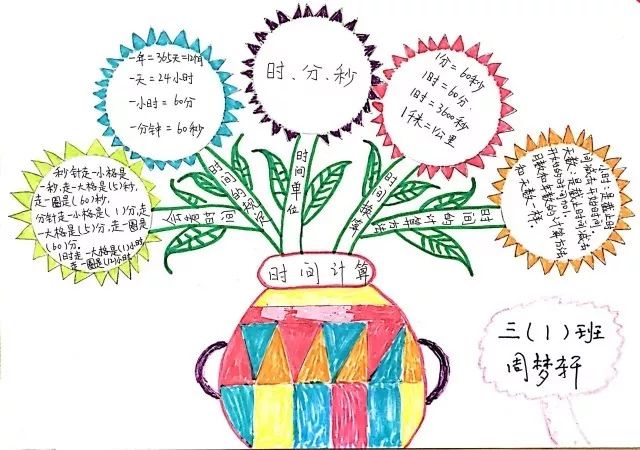 一年=365天=12个月
一天=24小时
一小时=60分
一分钟=60秒
时、分、秒
1分=60秒
1时=60分
1时=3600秒
1千米=1公里
秒针走一小格是
一秒,走一大格是(5)秒,
走一圈是(60)秒.
分针走一小格是(1)分,走
一大格是(5)分,走一圈是
(60)分.
1时走一大格是(1)小时
走一圈是(12)小时
时间的规定
时间单位
时间换算
时间的计算方法
时间
时间计算
三(1)班
周梦轩